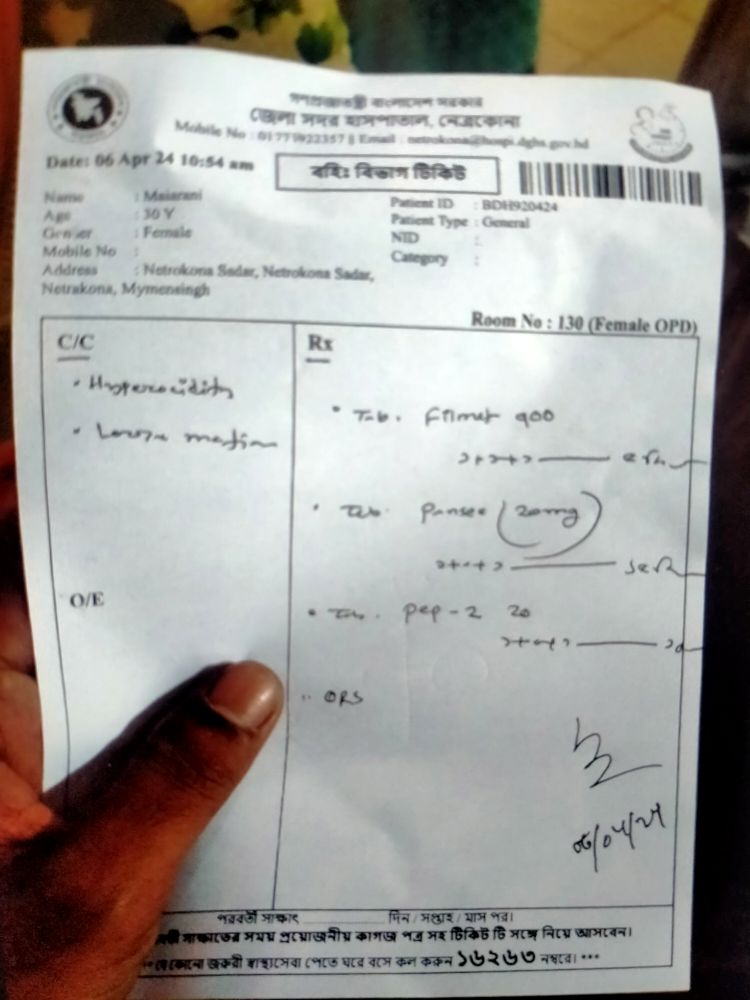 গণপ্রজাতন্ত্রী বাংলাদেশ সরকার
জেলা সদর হাসপাতাল, নেত্রকোনা
Mobile No : || Email : netrokona@hospi.dghs.gov.bd
Date: 06 Apr 24 10:54 am
বহিঃ বিভাগ টিকিট
Name : Maiarani
Age : 30 Y
Gender : Female
Mobile No :
Address : Netrokona Sadar, Netrokona Sadar,
Netrakona, Mymensingh
Patient ID : BDH920424
Patient Type : General
NID :
Category :
Room No : 130 (Female OPD)
C/C
Hyperacidity
Rx
Tab. Filmet 400
Tab. (20mg)
O/E
Tab. pep-2 20
ORS
০৬/০৪/২৪
পরবর্তী সাক্ষাৎ দিন / সপ্তাহ / মাস পর।
সাক্ষাতের সময় প্রয়োজনীয় কাগজ পত্র সহ টিকিট টি সঙ্গে নিয়ে আসবেন।
***যে কোনো জরুরী স্বাস্থ্যসেবা পেতে ঘরে বসে কল করুন ১৬২৬৩ নম্বরে। ***